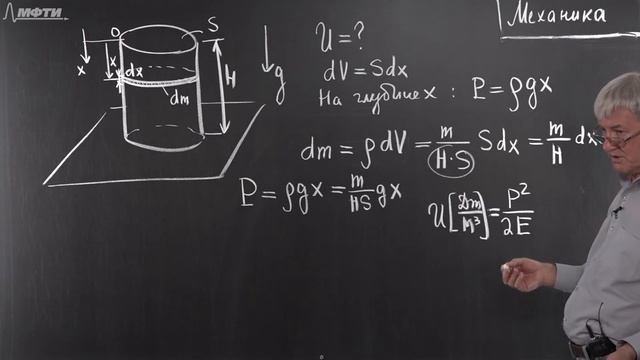 МФТИ
Механика
O
S
x
x
dx
H
g
dm
U = ?
dV = Sdx
На глубине x : P = ρgx
dm = ρ dV = m/(H·S) Sdx = m/H dx
P = ρgx = m/HS gx
U [Дж/м³] = P²/2E